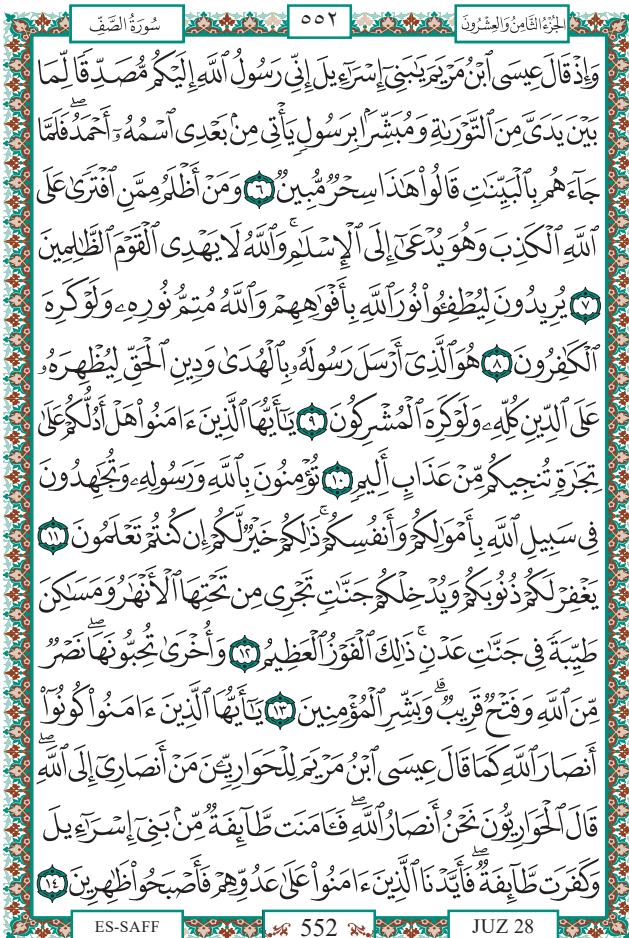 سُورَةُ الصَّفِّ ٥٥٢ الجُزْءُ الثَّامِنُ وَالعِشْرُونَ
وَإِذْ قَالَ عِيسَى ٱبْنُ مَرْيَمَ يَٰبَنِىٓ إِسْرَٰٓءِيلَ إِنِّى رَسُولُ ٱللَّهِ إِلَيْكُم مُّصَدِّقًا لِّمَا
بَيْنَ يَدَىَّ مِنَ ٱلتَّوْرَىٰةِ وَمُبَشِّرًۢا بِرَسُولٍ يَأْتِى مِنۢ بَعْدِى ٱسْمُهُۥٓ أَحْمَدُ ۖ فَلَمَّا
جَآءَهُم بِٱلْبَيِّنَٰتِ قَالُوا۟ هَٰذَا سِحْرٌ مُّبِينٌ ٦ وَمَنْ أَظْلَمُ مِمَّنِ ٱفْتَرَىٰ عَلَى
ٱللَّهِ ٱلْكَذِبَ وَهُوَ يُدْعَىٰٓ إِلَى ٱلْإِسْلَٰمِ ۚ وَٱللَّهُ لَا يَهْدِى ٱلْقَوْمَ ٱلظَّٰلِمِينَ
٧ يُرِيدُونَ لِيُطْفِـُٔوا۟ نُورَ ٱللَّهِ بِأَفْوَٰهِهِمْ وَٱللَّهُ مُتِمُّ نُورِهِۦ وَلَوْ كَرِهَ
ٱلْكَٰفِرُونَ ٨ هُوَ ٱلَّذِىٓ أَرْسَلَ رَسُولَهُۥ بِٱلْهُدَىٰ وَدِينِ ٱلْحَقِّ لِيُظْهِرَهُۥ
عَلَى ٱلدِّينِ كُلِّهِۦ وَلَوْ كَرِهَ ٱلْمُشْرِكُونَ ٩ يَٰٓأَيُّهَا ٱلَّذِينَ ءَامَنُوا۟ هَلْ أَدُلُّكُمْ عَلَىٰ
تِجَٰرَةٍ تُنجِيكُم مِّنْ عَذَابٍ أَلِيمٍ ١٠ تُؤْمِنُونَ بِٱللَّهِ وَرَسُولِهِۦ وَتُجَٰهِدُونَ
فِى سَبِيلِ ٱللَّهِ بِأَمْوَٰلِكُمْ وَأَنفُسِكُمْ ۚ ذَٰلِكُمْ خَيْرٌ لَّكُمْ إِن كُنتُمْ تَعْلَمُونَ ١١
يَغْفِرْ لَكُمْ ذُنُوبَكُمْ وَيُدْخِلْكُمْ جَنَّٰتٍ تَجْرِى مِن تَحْتِهَا ٱلْأَنْهَٰرُ وَمَسَٰكِنَ
طَيِّبَةً فِى جَنَّٰتِ عَدْنٍ ۚ ذَٰلِكَ ٱلْفَوْزُ ٱلْعَظِيمُ ١٢ وَأُخْرَىٰ تُحِبُّونَهَا ۖ نَصْرٌ
مِّنَ ٱللَّهِ وَفَتْحٌ قَرِيبٌ ۗ وَبَشِّرِ ٱلْمُؤْمِنِينَ ١٣ يَٰٓأَيُّهَا ٱلَّذِينَ ءَامَنُوا۟ كُونُوٓا۟
أَنصَارَ ٱللَّهِ كَمَا قَالَ عِيسَى ٱبْنُ مَرْيَمَ لِلْحَوَارِيِّـۧنَ مَنْ أَنصَارِىٓ إِلَى ٱللَّهِ ۖ
قَالَ ٱلْحَوَارِيُّونَ نَحْنُ أَنصَارُ ٱللَّهِ ۖ فَـَٔامَنَت طَّآئِفَةٌ مِّنۢ بَنِىٓ إِسْرَٰٓءِيلَ
وَكَفَرَت طَّآئِفَةٌ ۖ فَأَيَّدْنَا ٱلَّذِينَ ءَامَنُوا۟ عَلَىٰ عَدُوِّهِمْ فَأَصْبَحُوا۟ ظَٰهِرِينَ ١٤
ES-SAFF 552 JUZ 28